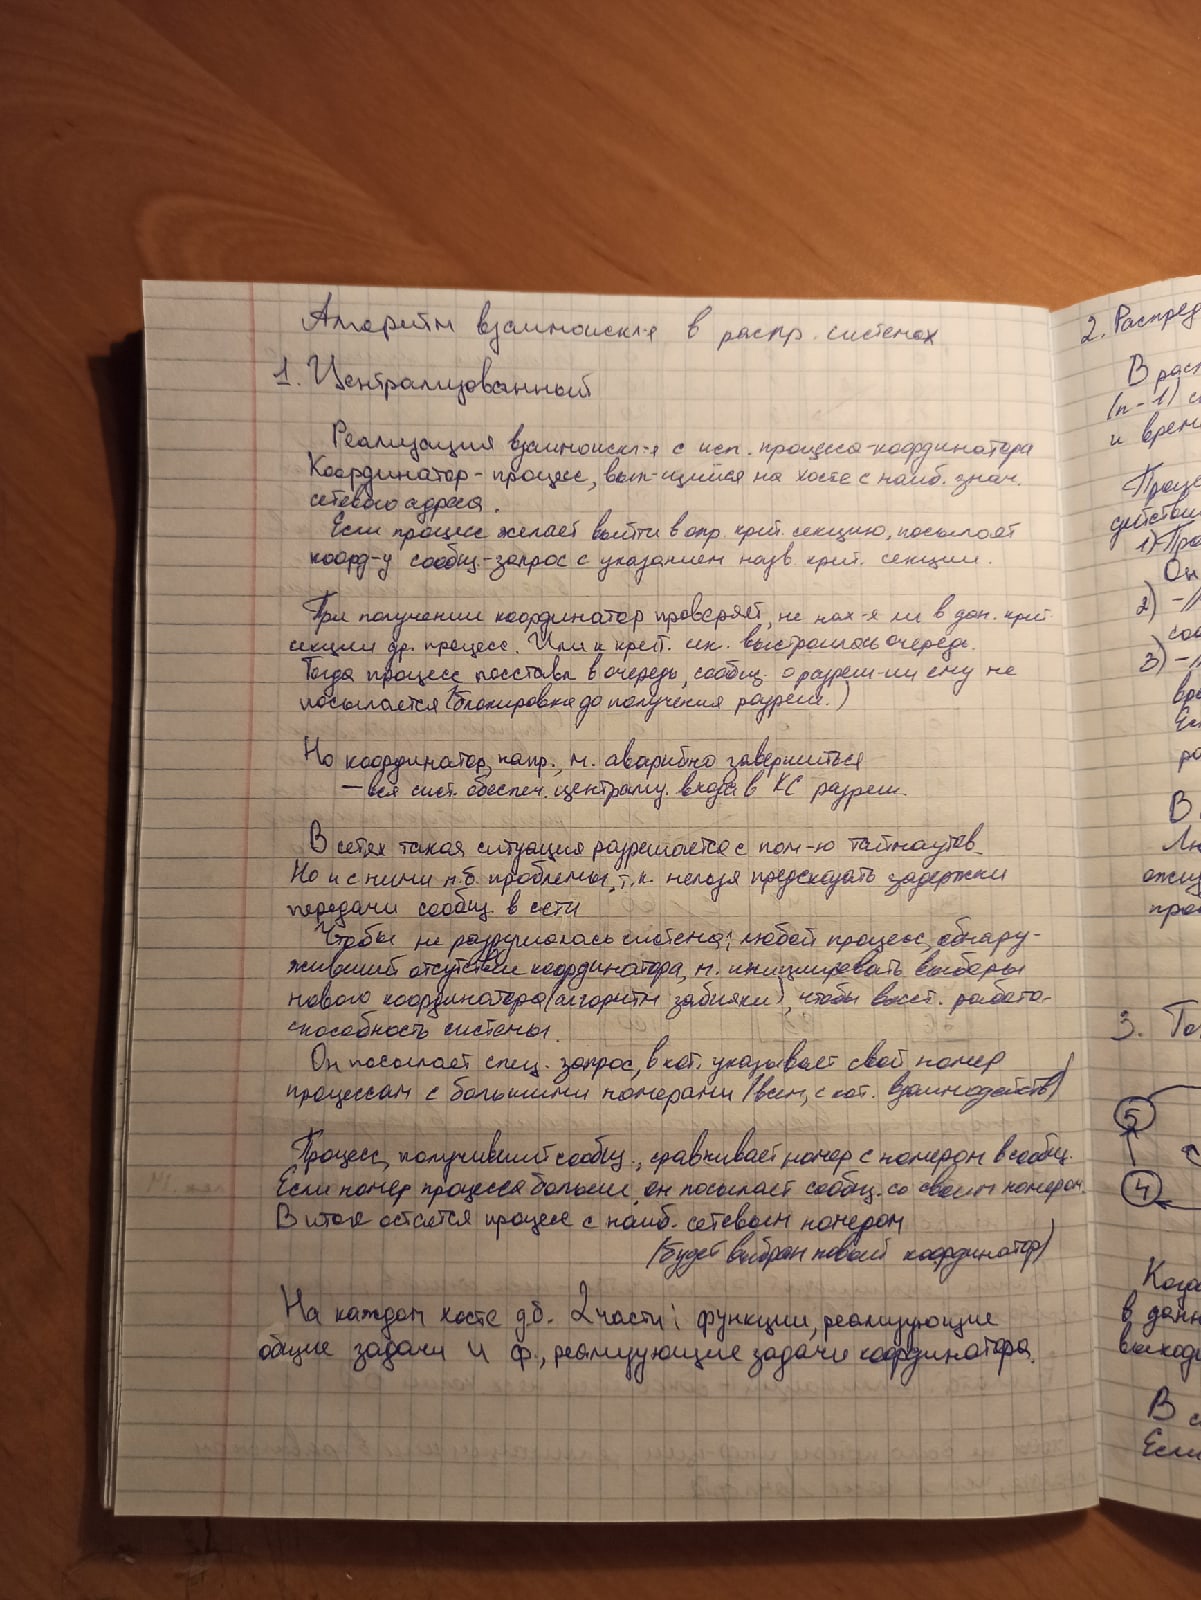 Алгоритм взаимоискл-я в распр. системах
1. Централизованный
Реализация взаимоискл-я с исп. процесса-координатора
Координатор - процесс, вып-щийся на хосте с наиб. знач.
сетевого адреса.
Если процесс желает выйти в опр. крит. секцию, посылает
коорд-у сообщ.-запрос с указанием назв. крит. секции.
При получении координатор проверяет, не нах-я ли в дан. крит.
секции др. процесс. Или к крит. сек. выстроилась очередь.
Тогда процесс поставл в очередь, сообщ. о разреш-ии ему не
посылается (блокировка до получения разреш.)
Но координатор, напр., м. аварийно завершиться
— вся сист. обеспеч. централиз. входа в КС разруш.
В сетях такая ситуация разрешается с пом-ю таймаутов.
Но и с ними м.б. проблемы, т.к. нельзя предсказать задержки
передачи сообщ. в сети
Чтобы не разрушилась система, любой процесс, обнару-
живший отсутствие координатора, м. инициировать выборы
нового координатора (алгоритм забияки), чтобы восст. работо-
способность системы.
Он посылает спец. запрос, в кот. указывает свой номер
процессам с большими номерами (всем, с кот. взаимодейств)
Процесс, получивший сообщ., сравнивает номер с номером в сообщ.
Если номер процесса больше, он посылает сообщ. со своим номером.
В итоге остается процесс с наиб. сетевым номером
(будет выбран новый координатор)
На каждом хосте д.б. 2 части: функции, реализующие
общие задачи и ф., реализующие задачи координатора.
2. Распред
В рас
(n-1) с
и врем
Проце
действи
1) Про
Он
2) -//
соо
3) -//
вр
Есл
ра
В
Лю
ожид
про
3. То
5
4
Когда
в данн
выход
В с
Если